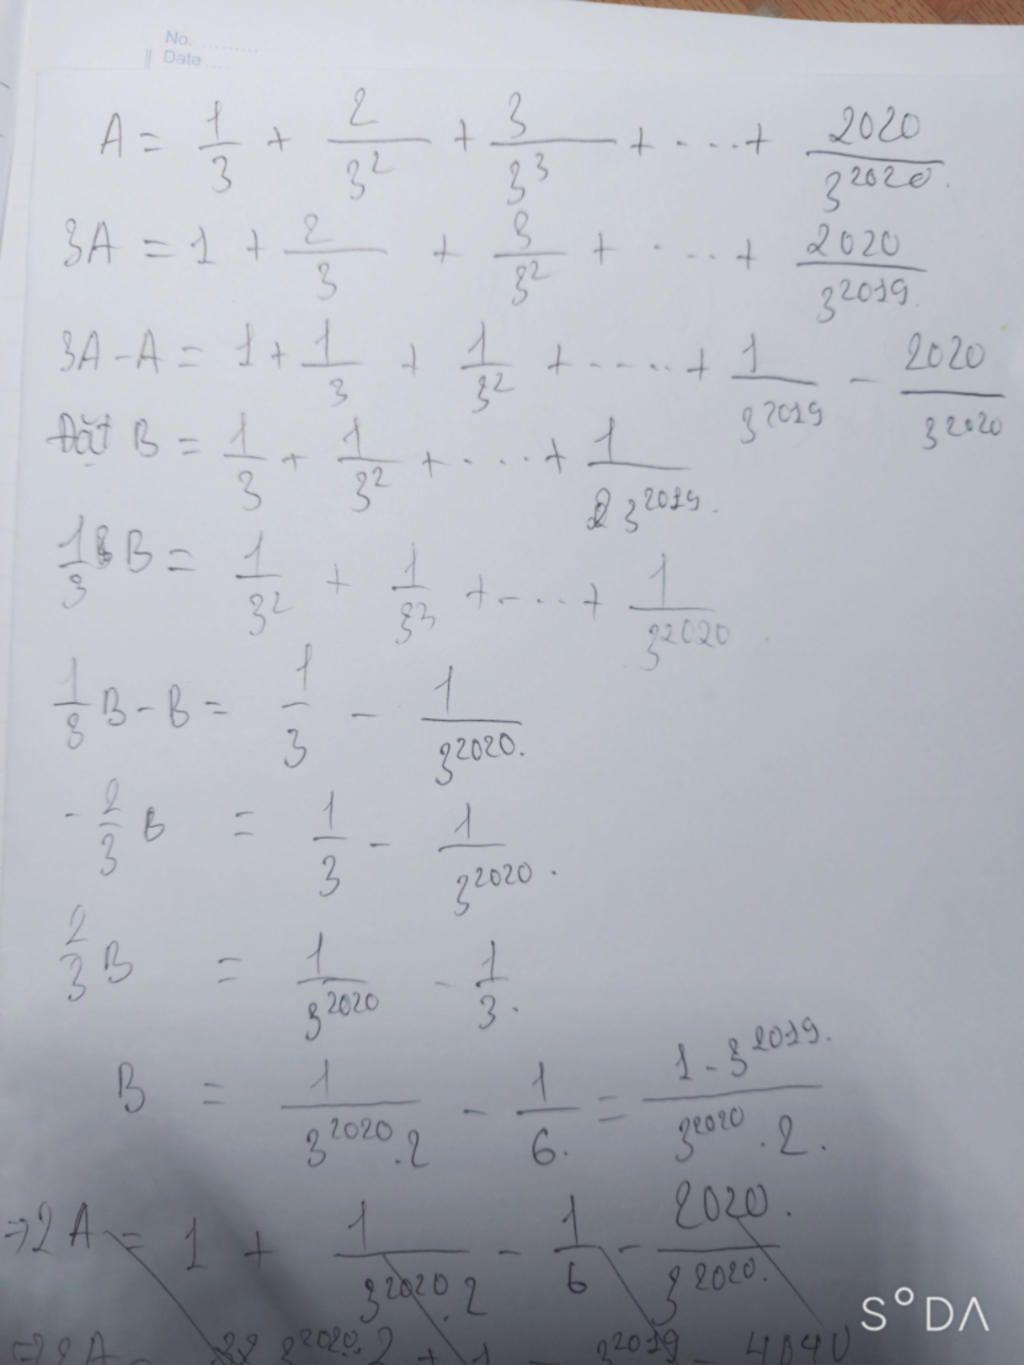 No. ..........
Date ..........
A = 1/3 + 2/3^2 + 3/3^3 + ... + 2020/3^2020.
3A = 1 + 2/3 + 3/3^2 + ... + 2020/3^2019.
3A - A = 1 + 1/3 + 1/3^2 + ... + 1/3^2019 - 2020/3^2020
Đặt B = 1/3 + 1/3^2 + ... + 1/3^2019.
1/3 B = 1/3^2 + 1/3^3 + ... + 1/3^2020.
1/3 B - B = 1/3 - 1/3^2020.
- 2/3 B = 1/3 - 1/3^2020.
2/3 B = 1/3^2020 - 1/3.
B = 1/3^2020.2 - 1/6. = 1 - 3^2019./3^2020.2.
⇒ 2A = 1 + 1/3^2020.2 - 1/6 - 2020./3^2020.
S°DA